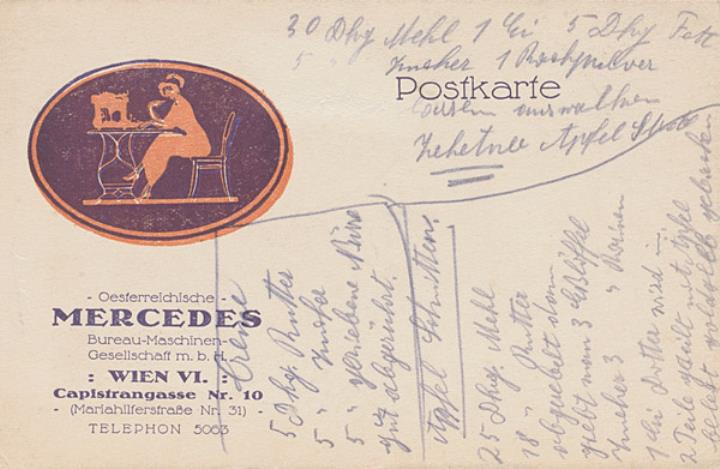 30 Dkg Mehl 1 Ei 5 Dkg Fett
5 " Zucker 1 Backpulver
Postkarte
auswalken
Apfel
- Oesterreichische -
MERCEDES
Bureau-Maschinen-
Gesellschaft m. b. H.
: WIEN VI. :
Capistrangasse Nr. 10
- (Mariahilferstraße Nr. 31) -
TELEPHON 5063
Creme
5 Dkg. Butter
5 " Zucker
5 " geriebene Nüsse
gut abgerührt.
Apfel Schnitten.
25 Dkg. Mehl
18 " Butter
abgebröselt dann
gibt man 3 Eßlöffel
Zucker 3 "
1 Ei Dotter wird
2 Teile
goldgelb gebacken